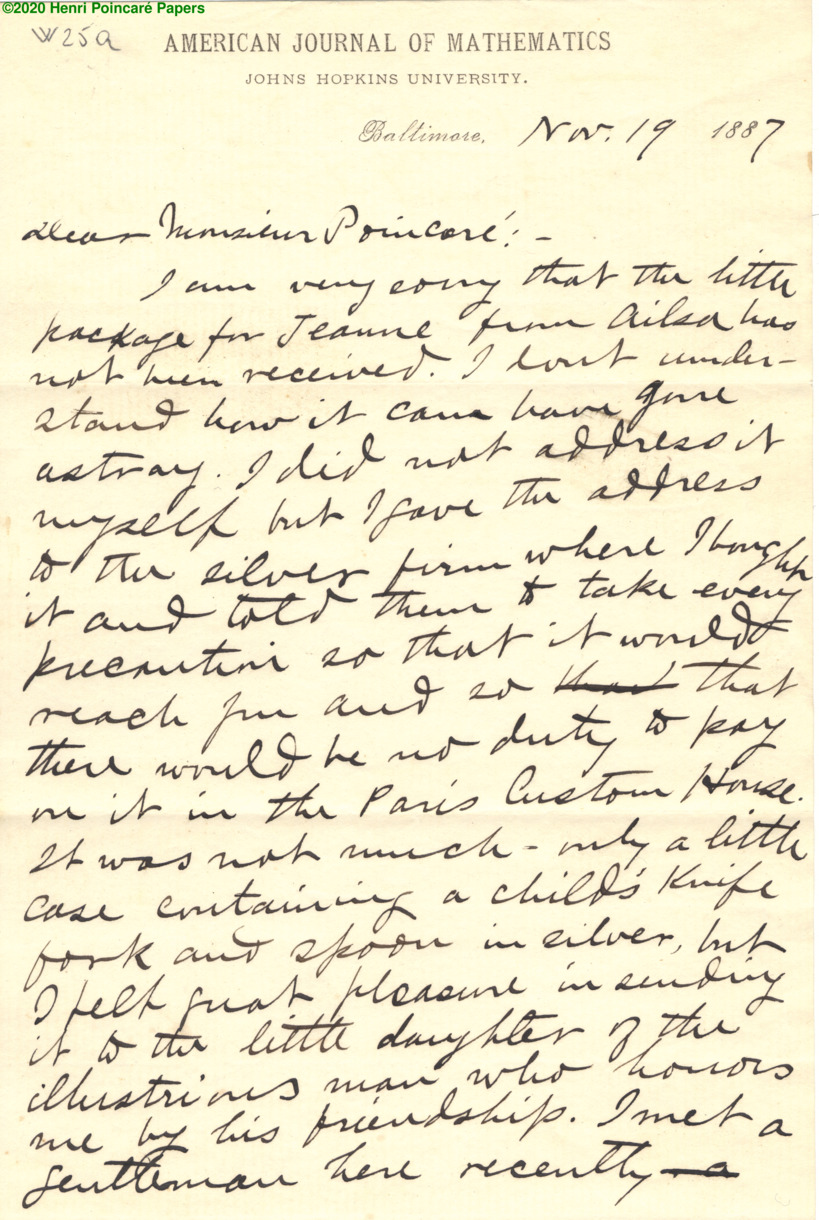 ©2020 Henri Poincaré Papers
W25a
AMERICAN JOURNAL OF MATHEMATICS
JOHNS HOPKINS UNIVERSITY.
Baltimore, Nov. 19 1887
Dear Monsieur Poincaré: -
I am very sorry that the little
package for Jeanne from Ailsa has
not been received. I dont under-
stand how it can have gone
astray. I did not address it
myself but I gave the address
to the silver firm where I bought
it and told them to take every
precaution so that it would
reach you and so that that
there would be no duty to pay
on it in the Paris Custom House.
It was not much - only a little
case containing a child's Knife
fork and spoon in silver, but
I felt great pleasure in sending
it to the little daughter of the
illustrious man who honors
me by his friendship. I met a
gentleman here recently a